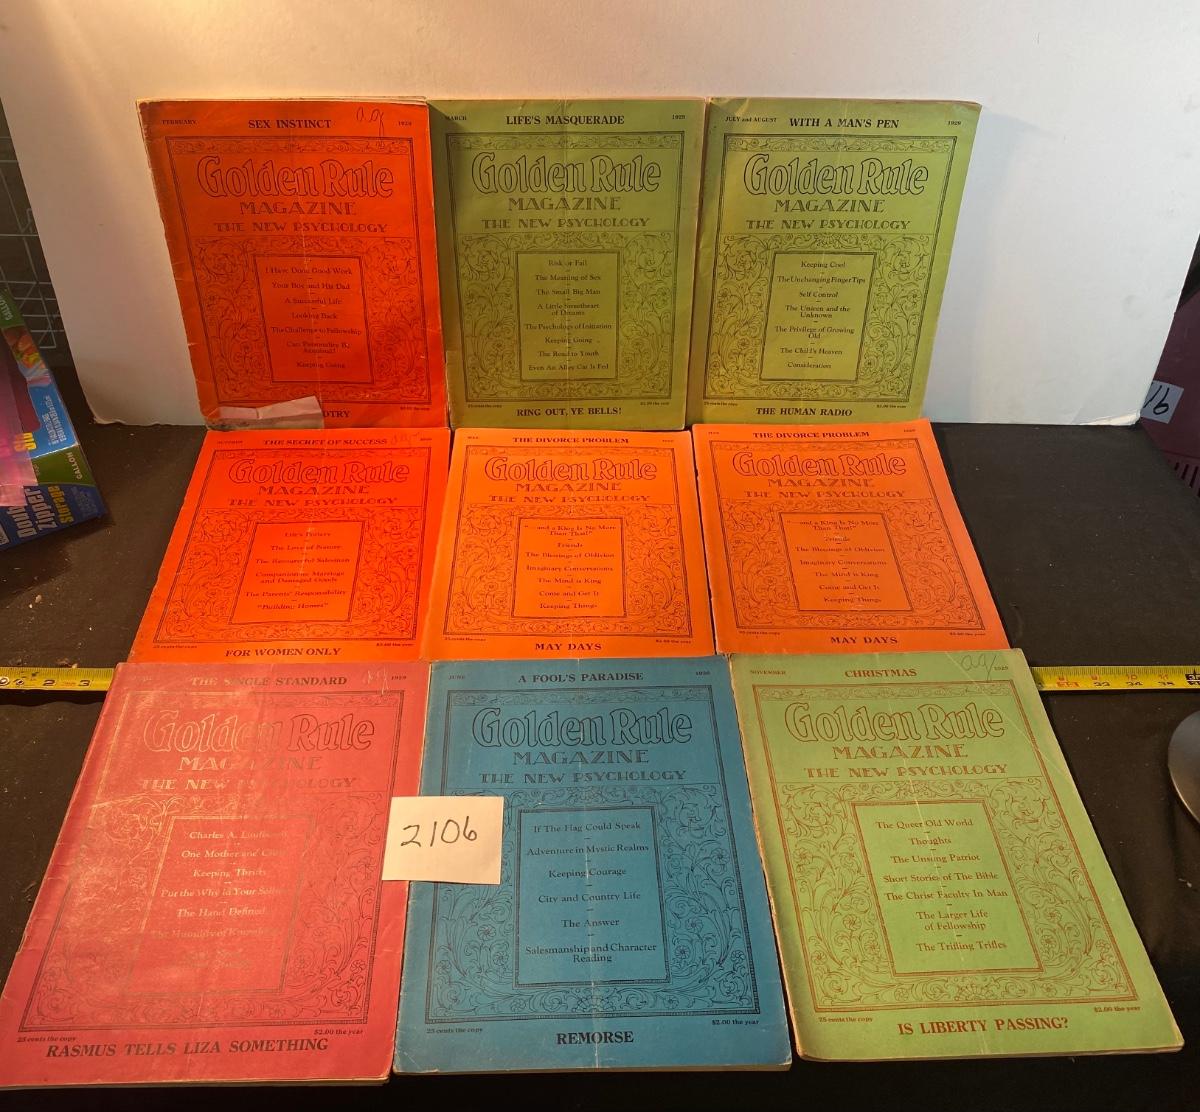 FEBRUARY SEX INSTINCT ag 1929
Golden Rule
MAGAZINE
THE NEW PSYCHOLOGY
I Have Done Good Work
Your Boy and His Dad
A Successful Life
Looking Back
The Challenge to Fellowship
Can Personality Be
Acquired?
Keeping Going
$2.00 the year
MARCH LIFE'S MASQUERADE 1929
Golden Rule
MAGAZINE
THE NEW PSYCHOLOGY
Risk or Fail
The Meaning of Sex
The Small Big Man
A Little Sweetheart
of Dreams
The Psychology of Imitation
Keeping Going
The Road to Youth
Even An Alley Cat Is Fed
25 cents the copy $2.00 the year
RING OUT, YE BELLS!
JULY and AUGUST WITH A MAN'S PEN 1929
Golden Rule
MAGAZINE
THE NEW PSYCHOLOGY
Keeping Cool
The Unchanging Finger Tips
Self Control
The Unseen and the
Unknown
The Privilege of Growing
Old
The Child's Heaven
Consideration
25 cents the copy $2.00 the year
THE HUMAN RADIO
OCTOBER THE SECRET OF SUCCESS ag 1929
Golden Rule
MAGAZINE
THE NEW PSYCHOLOGY
Life's Pottery
The Love of Nature
The Resourceful Salesman
Companionate Marriage
and Damaged Goods
The Parents' Responsibility
"Building Homes"
25 cents the copy $2.00 the year
FOR WOMEN ONLY
MAY THE DIVORCE PROBLEM 1929
Golden Rule
MAGAZINE
THE NEW PSYCHOLOGY
"—and a King Is No More
Than That!"
Friends
The Blessings of Oblivion
Imaginary Conversations
The Mind is King
Come and Get It
Keeping Things
25 cents the copy $2.00 the year
MAY DAYS
MAY THE DIVORCE PROBLEM 1929
Golden Rule
MAGAZINE
THE NEW PSYCHOLOGY
"—and a King Is No More
Than That!"
Friends
The Blessings of Oblivion
Imaginary Conversations
The Mind is King
Come and Get It
Keeping Things
25 cents the copy $2.00 the year
MAY DAYS
THE SINGLE STANDARD ag 1929
Golden Rule
MAGAZINE
THE NEW PSYCHOLOGY
Charles A. Lindbergh
One Mother and
Keeping Thrifty
Put the Why in Your
The Hand Defined
The Humility of
25 cents the copy $2.00 the year
RASMUS TELLS LIZA SOMETHING
2106
JUNE A FOOL'S PARADISE
Golden Rule
MAGAZINE
THE NEW PSYCHOLOGY
If The Flag Could Speak
Adventure in Mystic Realms
Keeping Courage
City and Country Life
The Answer
Salesmanship and Character
Reading
25 cents the copy $2.00 the year
REMORSE
NOVEMBER CHRISTMAS ag 1929
Golden Rule
MAGAZINE
THE NEW PSYCHOLOGY
The Queer Old World
Thoughts
The Unsung Patriot
Short Stories of The Bible
The Christ Faculty In Man
The Larger Life
of Fellowship
The Trifling Trifles
25 cents the copy $2.00 the year
IS LIBERTY PASSING?
GALLON
Zipper
Storage
2 3
33 34 35